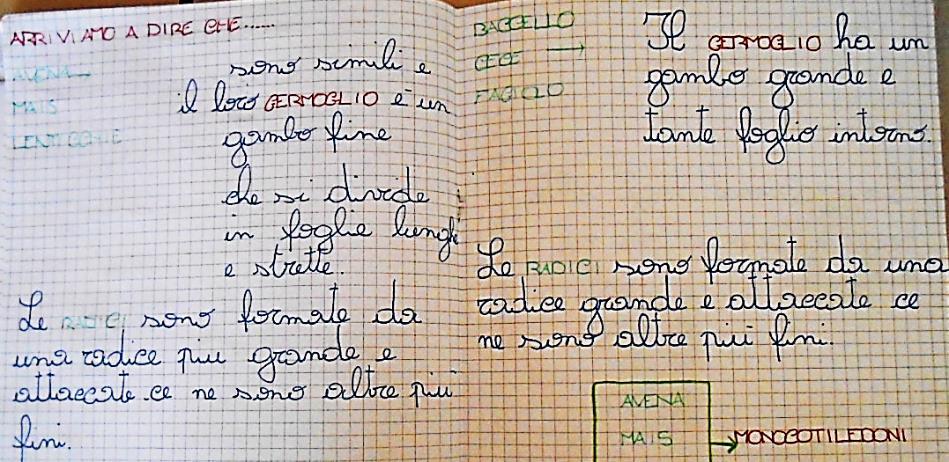 ARRIVIAMO A DIRE CHE......
AVENA
MAIS
LENTICCHIE
sono simili e
il loro GERMOGLIO è un
gambo fine
che si divide
in foglie lunghe
e strette.
Le RADICI sono formate da
una radice piu grande e
attaccate ce ne sono altre piu
fini.
BACCELLO
CECE
FAGIOLO
Il GERMOGLIO ha un
gambo grande e
tante foglio intorno.
Le RADICI sono formate da una
radice grande e attaccate ce
ne sono altre piui fini.
AVENA
MAIS
MONOCOTILEDONI